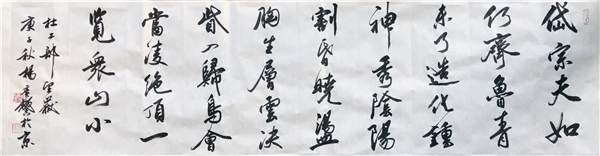 岱宗夫如
何齊魯青
未了造化鍾
神秀陰陽
割昏曉盪
胸生層雲決
眥入歸鳥會
當凌絕頂一
覽眾山小
杜工部望嶽
庚子秋楊於京